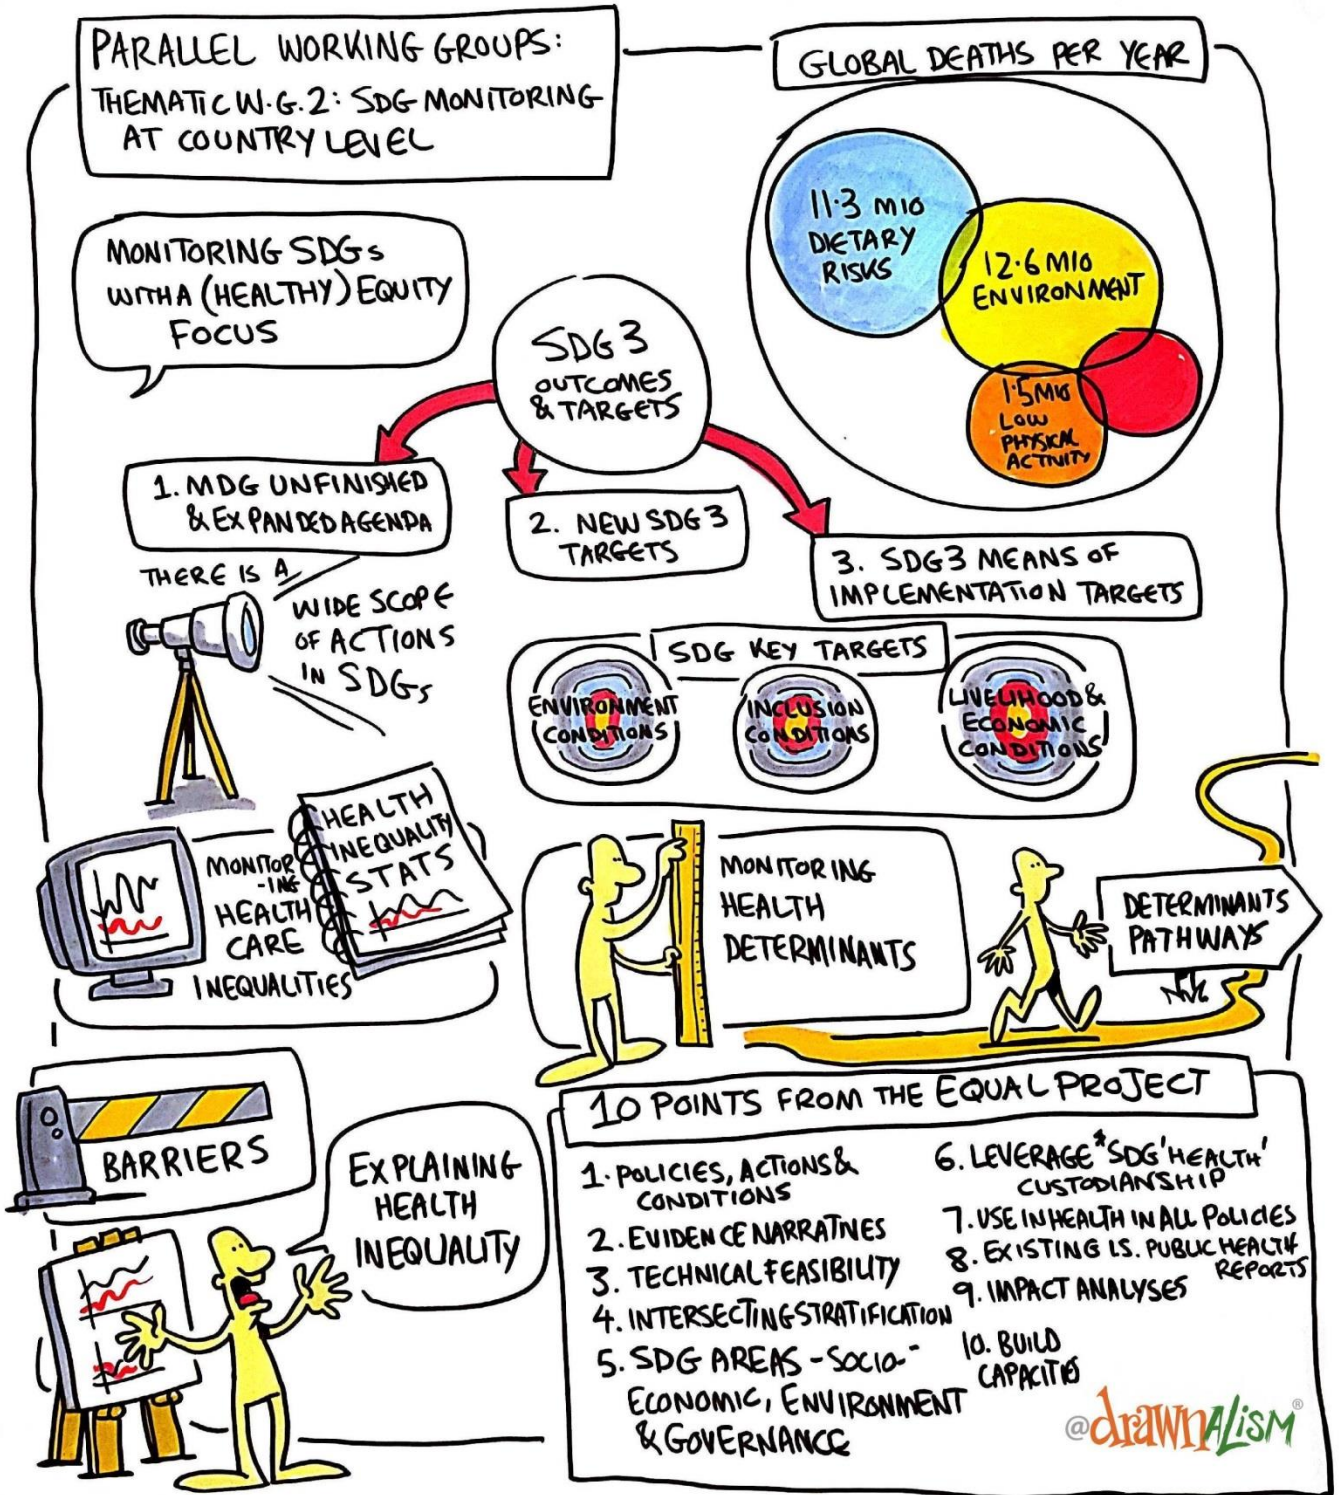 PARALLEL WORKING GROUPS:
THEMATIC W.G.2: SDG MONITORING
AT COUNTRY LEVEL
GLOBAL DEATHS PER YEAR
11.3 MIO
DIETARY
RISKS
12.6 MIO
ENVIRONMENT
1.5 MIO
LOW
PHYSICAL
ACTIVITY
MONITORING SDGs
WITH A (HEALTHY) EQUITY
FOCUS
SDG 3
OUTCOMES
& TARGETS
1. MDG UNFINISHED
& EXPANDED AGENDA
2. NEW SDG 3
TARGETS
3. SDG3 MEANS OF
IMPLEMENTATION TARGETS
THERE IS A
WIDE SCOPE
OF ACTIONS
IN SDGs
SDG KEY TARGETS
ENVIRONMENT
CONDITIONS
INCLUSION
CONDITIONS
LIVELIHOOD &
ECONOMIC
CONDITIONS
MONITOR
-ING
HEALTH
CARE
INEQUALITIES
HEALTH
INEQUALITY
STATS
MONITORING
HEALTH
DETERMINANTS
DETERMINANTS
PATHWAYS
BARRIERS
EXPLAINING
HEALTH
INEQUALITY
10 POINTS FROM THE EQUAL PROJECT
1. POLICIES, ACTIONS &
CONDITIONS
2. EVIDENCE NARRATIVES
3. TECHNICAL FEASIBILITY
4. INTERSECTING STRATIFICATION
5. SDG AREAS - SOCIO-
ECONOMIC, ENVIRONMENT
& GOVERNANCE
6. LEVERAGE "SDG 'HEALTH'
CUSTODIANSHIP
7. USE IN HEALTH IN ALL POLICIES
8. EXISTING I.S. PUBLIC HEALTH
REPORTS
9. IMPACT ANALYSES
10. BUILD
CAPACITIES
@drawnALiSM®